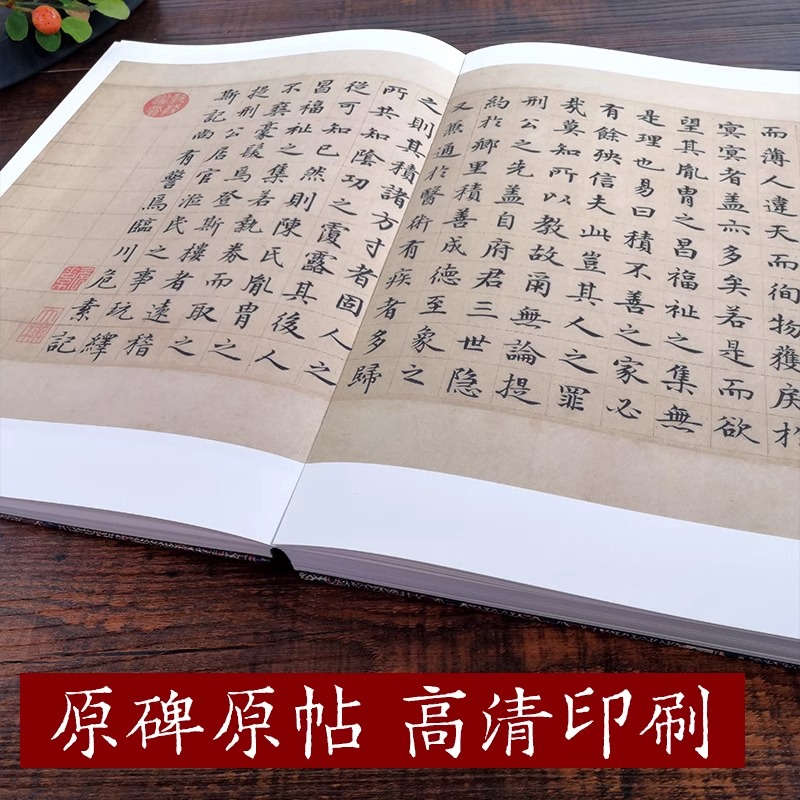 而薄人違天而徇物獲戾於
冥冥者盖亦多矣若是而欲
望其胤胄之昌福祉之集無
是理也易曰積不善之家必
有餘殃信夫此豈其人之罪
哉莫知所以教故爾無論提
刑公之先盖自府君三世隐
約於鄉里積善成德至象之
又兼通於醫術有疾者多歸
之則其積諸方寸者固人之
所共知陰功之覆露其後人
從可知已然則陳氏胤胄之
昌福祉之集若執券而取之
不爽豪髮焉登斯樓者遠稽
提刑公居官涖民之事玩繹
斯記尚有警焉臨川危素記
原碑原帖 高清印刷